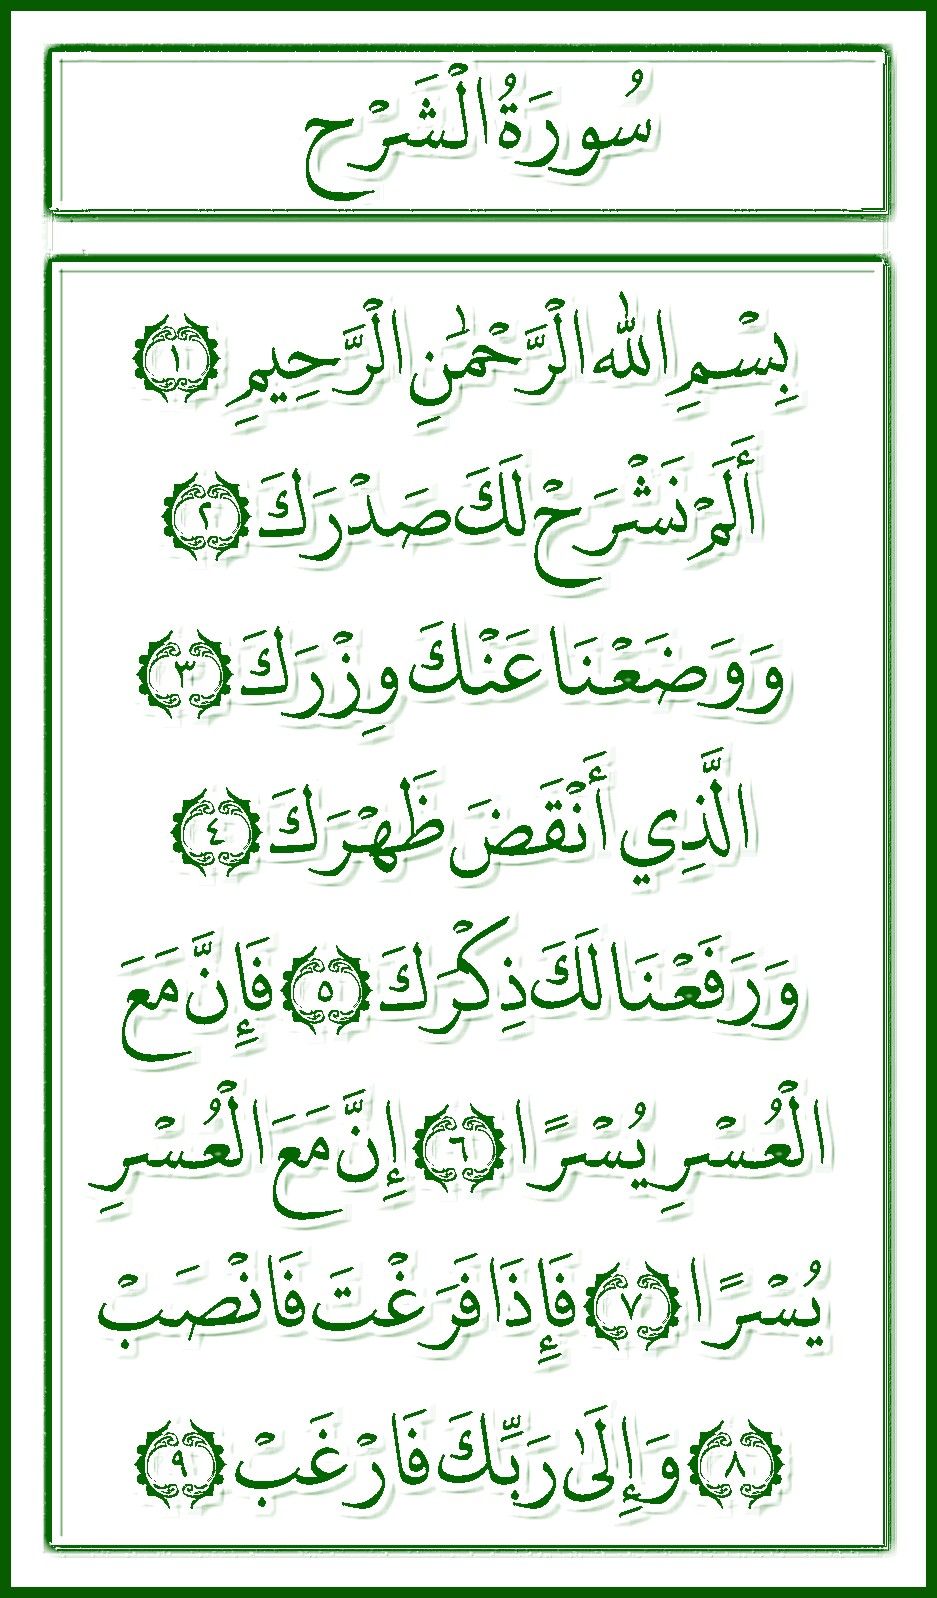 سُورَةُ الْشَرْح
بِسْمِ اللّٰهِ الْرَّحْمَٰنِ الْرَّحِيمِ ١
أَلَمْ نَشْرَحْ لَكَ صَدْرَكَ ٢
وَوَضَعْنَا عَنْكَ وِزْرَكَ ٣
الَّذِي أَنْقَضَ ظَهْرَكَ ٤
وَرَفَعْنَا لَكَ ذِكْرَكَ ٥ فَإِنَّ مَعَ
الْعُسْرِ يُسْرًا ٦ إِنَّ مَعَ الْعُسْرِ
يُسْرًا ٧ فَإِذَا فَرَغْتَ فَانْصَبْ
٨ وَإِلَىٰ رَبِّكَ فَارْغَبْ ٩